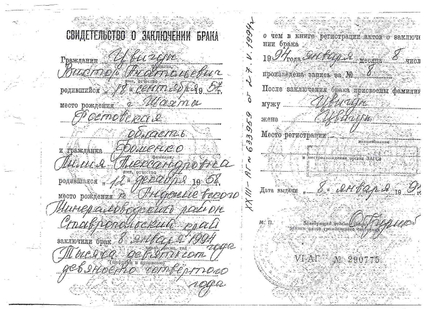 СВИДЕТЕЛЬСТВО О ЗАКЛЮЧЕНИИ БРАКА
Гражданин Цвигун
Виктор Анатольевич
родившийся 18 сентября 1957
место рождения г. Шахты
Ростовская
область
и гражданка Фоменко
Лилия Александровна
родившаяся 12 декабря 1962
место рождения
Минераловодский район
Ставропольский край
заключили брак 8 января 1994
года
Тысяча девятьсот
девяносто четвёртого
года
о чем в книге регистрации актов о заключе-
нии брака
1994 января месяца 8 числа
произведена запись за № 8
После заключения брака присвоены фамилии
мужу Цвигун
жене Цвигун
Место регистрации
Дата выдачи 8 января 199
М. П.
VI-АГ № 290775
XXIII-АГ № 633959 от 27.V.1994г